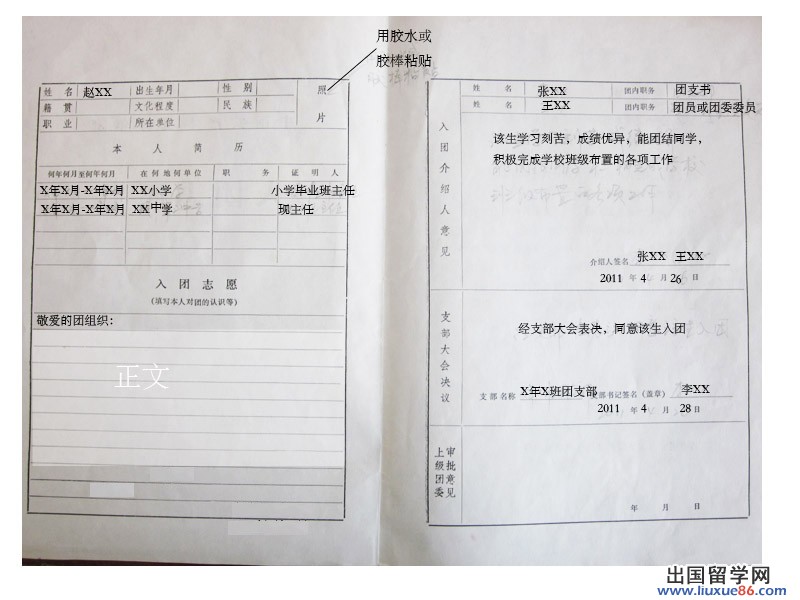 用胶水或
胶棒粘贴
姓名 赵XX 出生年月 性别 照
籍贯 文化程度 民族
职业 所在单位 片
本人简历
何年何月至何年何月 在何地何单位 职务 证明人
X年X月-X年X月 XX小学 小学毕业班主任
X年X月-X年X月 XX中学 现主任
入团志愿
(填写本人对团的认识等)
敬爱的团组织：
正文
姓名 张XX 团内职务 团支书
姓名 王XX 团内职务 团员或团委委员
入团介绍人意见
该生学习刻苦，成绩优异，能团结同学，
积极完成学校班级布置的各项工作
介绍人签名 张XX 王XX
2011 年 4 月 26 日
支部大会决议
经支部大会表决，同意该生入团
支部名称 X年X班团支部 支部书记签名(盖章) 李XX
2011 年 4 月 28 日
上级团委
审批意见
年 月 日
出国留学网
www.liuxue86.com